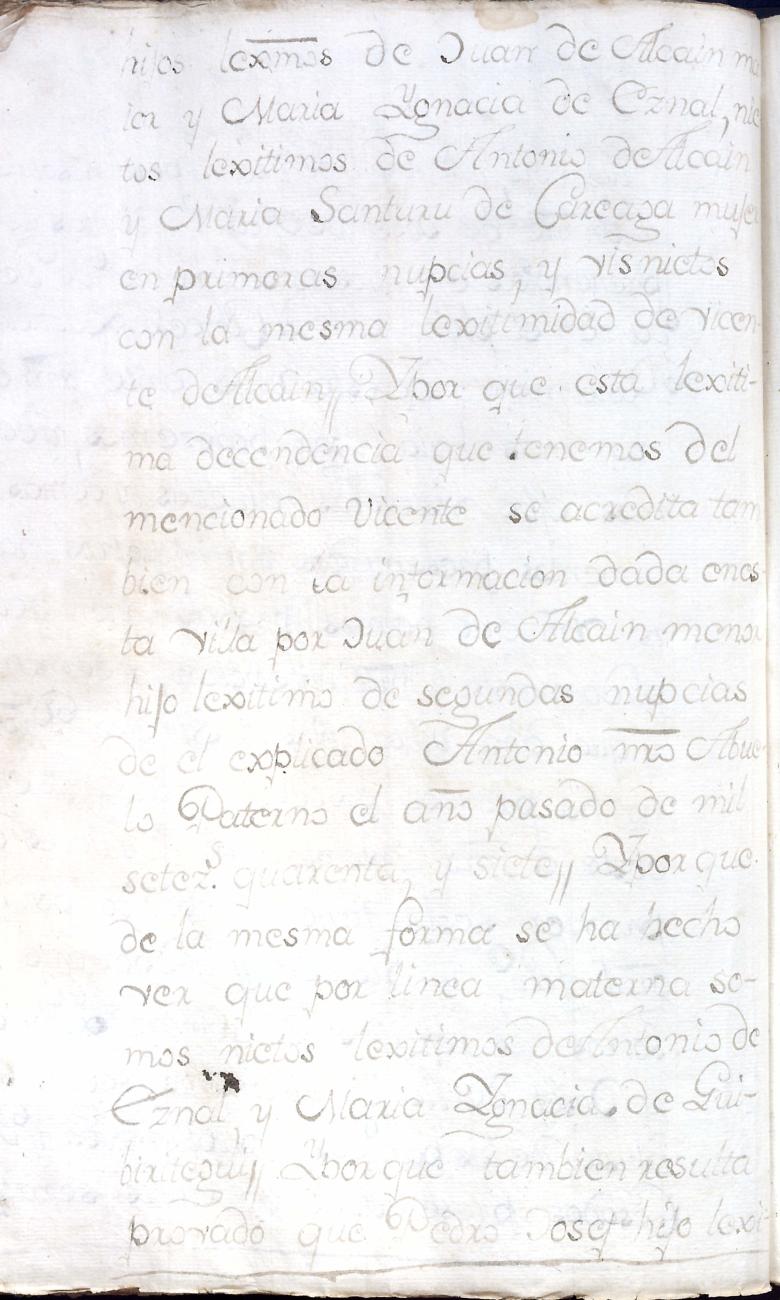 hijos lexmos de Juan de Alcain ma
ior y Maria Ygnacia de Eznal, nie
tos lexitimos de Antonio de Alcain
y Maria Santuru de Careaga mujer
en primeras nupcias, y visnietos
con la mesma lexitimidad de vicen-
te de Alcain// Ypor que esta lexiti-
ma decendencia que tenemos del
mencionado Vicente se acredita tam
bien con la informacion dada enes-
ta villa por Juan de Alcain menor
hijo lexitimo de segundas nupcias
de el explicado Antonio nro Abue-
lo Paterno el año pasado de mil
setezs. quarenta, y siete// Ypor que
de la mesma forma se ha hecho
ver que por linea materna so-
mos nietos lexitimos de Antonio de
Eznal y Maria Ygnacia de Gui-
biritegui// Ypor que tambien resulta
provado que Pedro Josef hijo lexi-